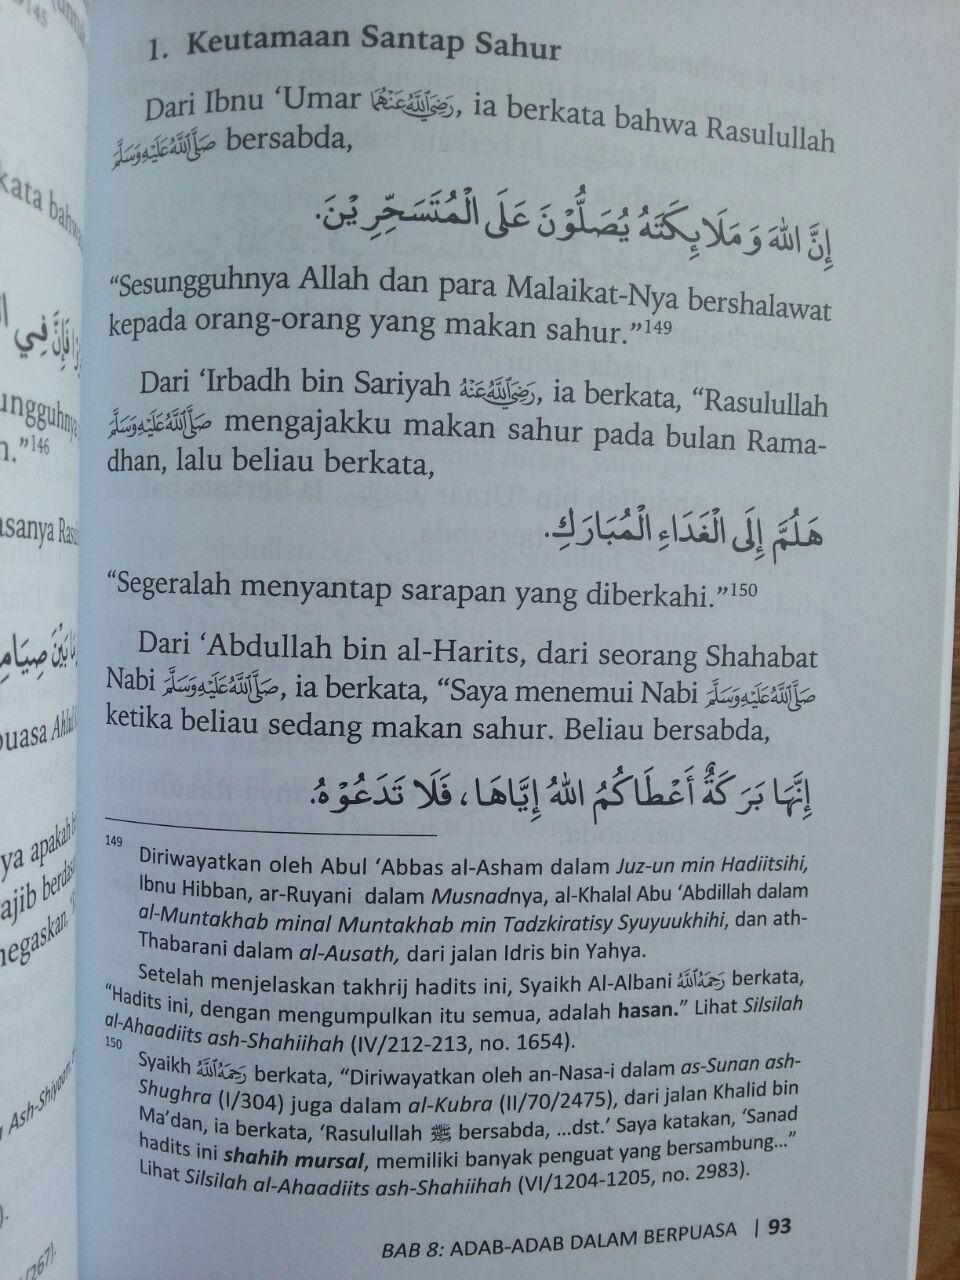 1. Keutamaan Santap Sahur
Dari Ibnu ‘Umar رضي الله عنهما, ia berkata bahwa Rasulullah
صلى الله عليه وسلم bersabda,
إِنَّ اللهَ وَمَلَائِكَتَهُ يُصَلُّوْنَ عَلَى الْمُتَسَحِّرِيْنَ.
“Sesungguhnya Allah dan para Malaikat-Nya bershalawat
kepada orang-orang yang makan sahur.”149
Dari ‘Irbadh bin Sariyah رضي الله عنه, ia berkata, “Rasulullah
صلى الله عليه وسلم mengajakku makan sahur pada bulan Rama-
dhan, lalu beliau berkata,
هَلُمَّ إِلَى الْغَدَاءِ الْمُبَارَكِ.
“Segeralah menyantap sarapan yang diberkahi.”150
Dari ‘Abdullah bin al-Harits, dari seorang Shahabat
Nabi صلى الله عليه وسلم, ia berkata, “Saya menemui Nabi صلى الله عليه وسلم
ketika beliau sedang makan sahur. Beliau bersabda,
إِنَّهَا بَرَكَةٌ أَعْطَاكُمُ اللهُ إِيَّاهَا، فَلَا تَدَعُوْهُ.
149 Diriwayatkan oleh Abul ‘Abbas al-Asham dalam Juz-un min Hadiitsihi,
Ibnu Hibban, ar-Ruyani dalam Musnadnya, al-Khalal Abu ‘Abdillah dalam
al-Muntakhab minal Muntakhab min Tadzkiratisy Syuyuukhihi, dan ath-
Thabarani dalam al-Ausath, dari jalan Idris bin Yahya.
Setelah menjelaskan takhrij hadits ini, Syaikh Al-Albani رحمه الله berkata,
“Hadits ini, dengan mengumpulkan itu semua, adalah hasan.” Lihat Silsilah
al-Ahaadiits ash-Shahiihah (IV/212-213, no. 1654).
150 Syaikh رحمه الله berkata, “Diriwayatkan oleh an-Nasa-i dalam as-Sunan ash-
Shughra (I/304) juga dalam al-Kubra (II/70/2475), dari jalan Khalid bin
Ma’dan, ia berkata, ‘Rasulullah ﷺ bersabda, ...dst.’ Saya katakan, ‘Sanad
hadits ini shahih mursal, memiliki banyak penguat yang bersambung...”
Lihat Silsilah al-Ahaadiits ash-Shahiihah (VI/1204-1205, no. 2983).
BAB 8: ADAB-ADAB DALAM BERPUASA | 93